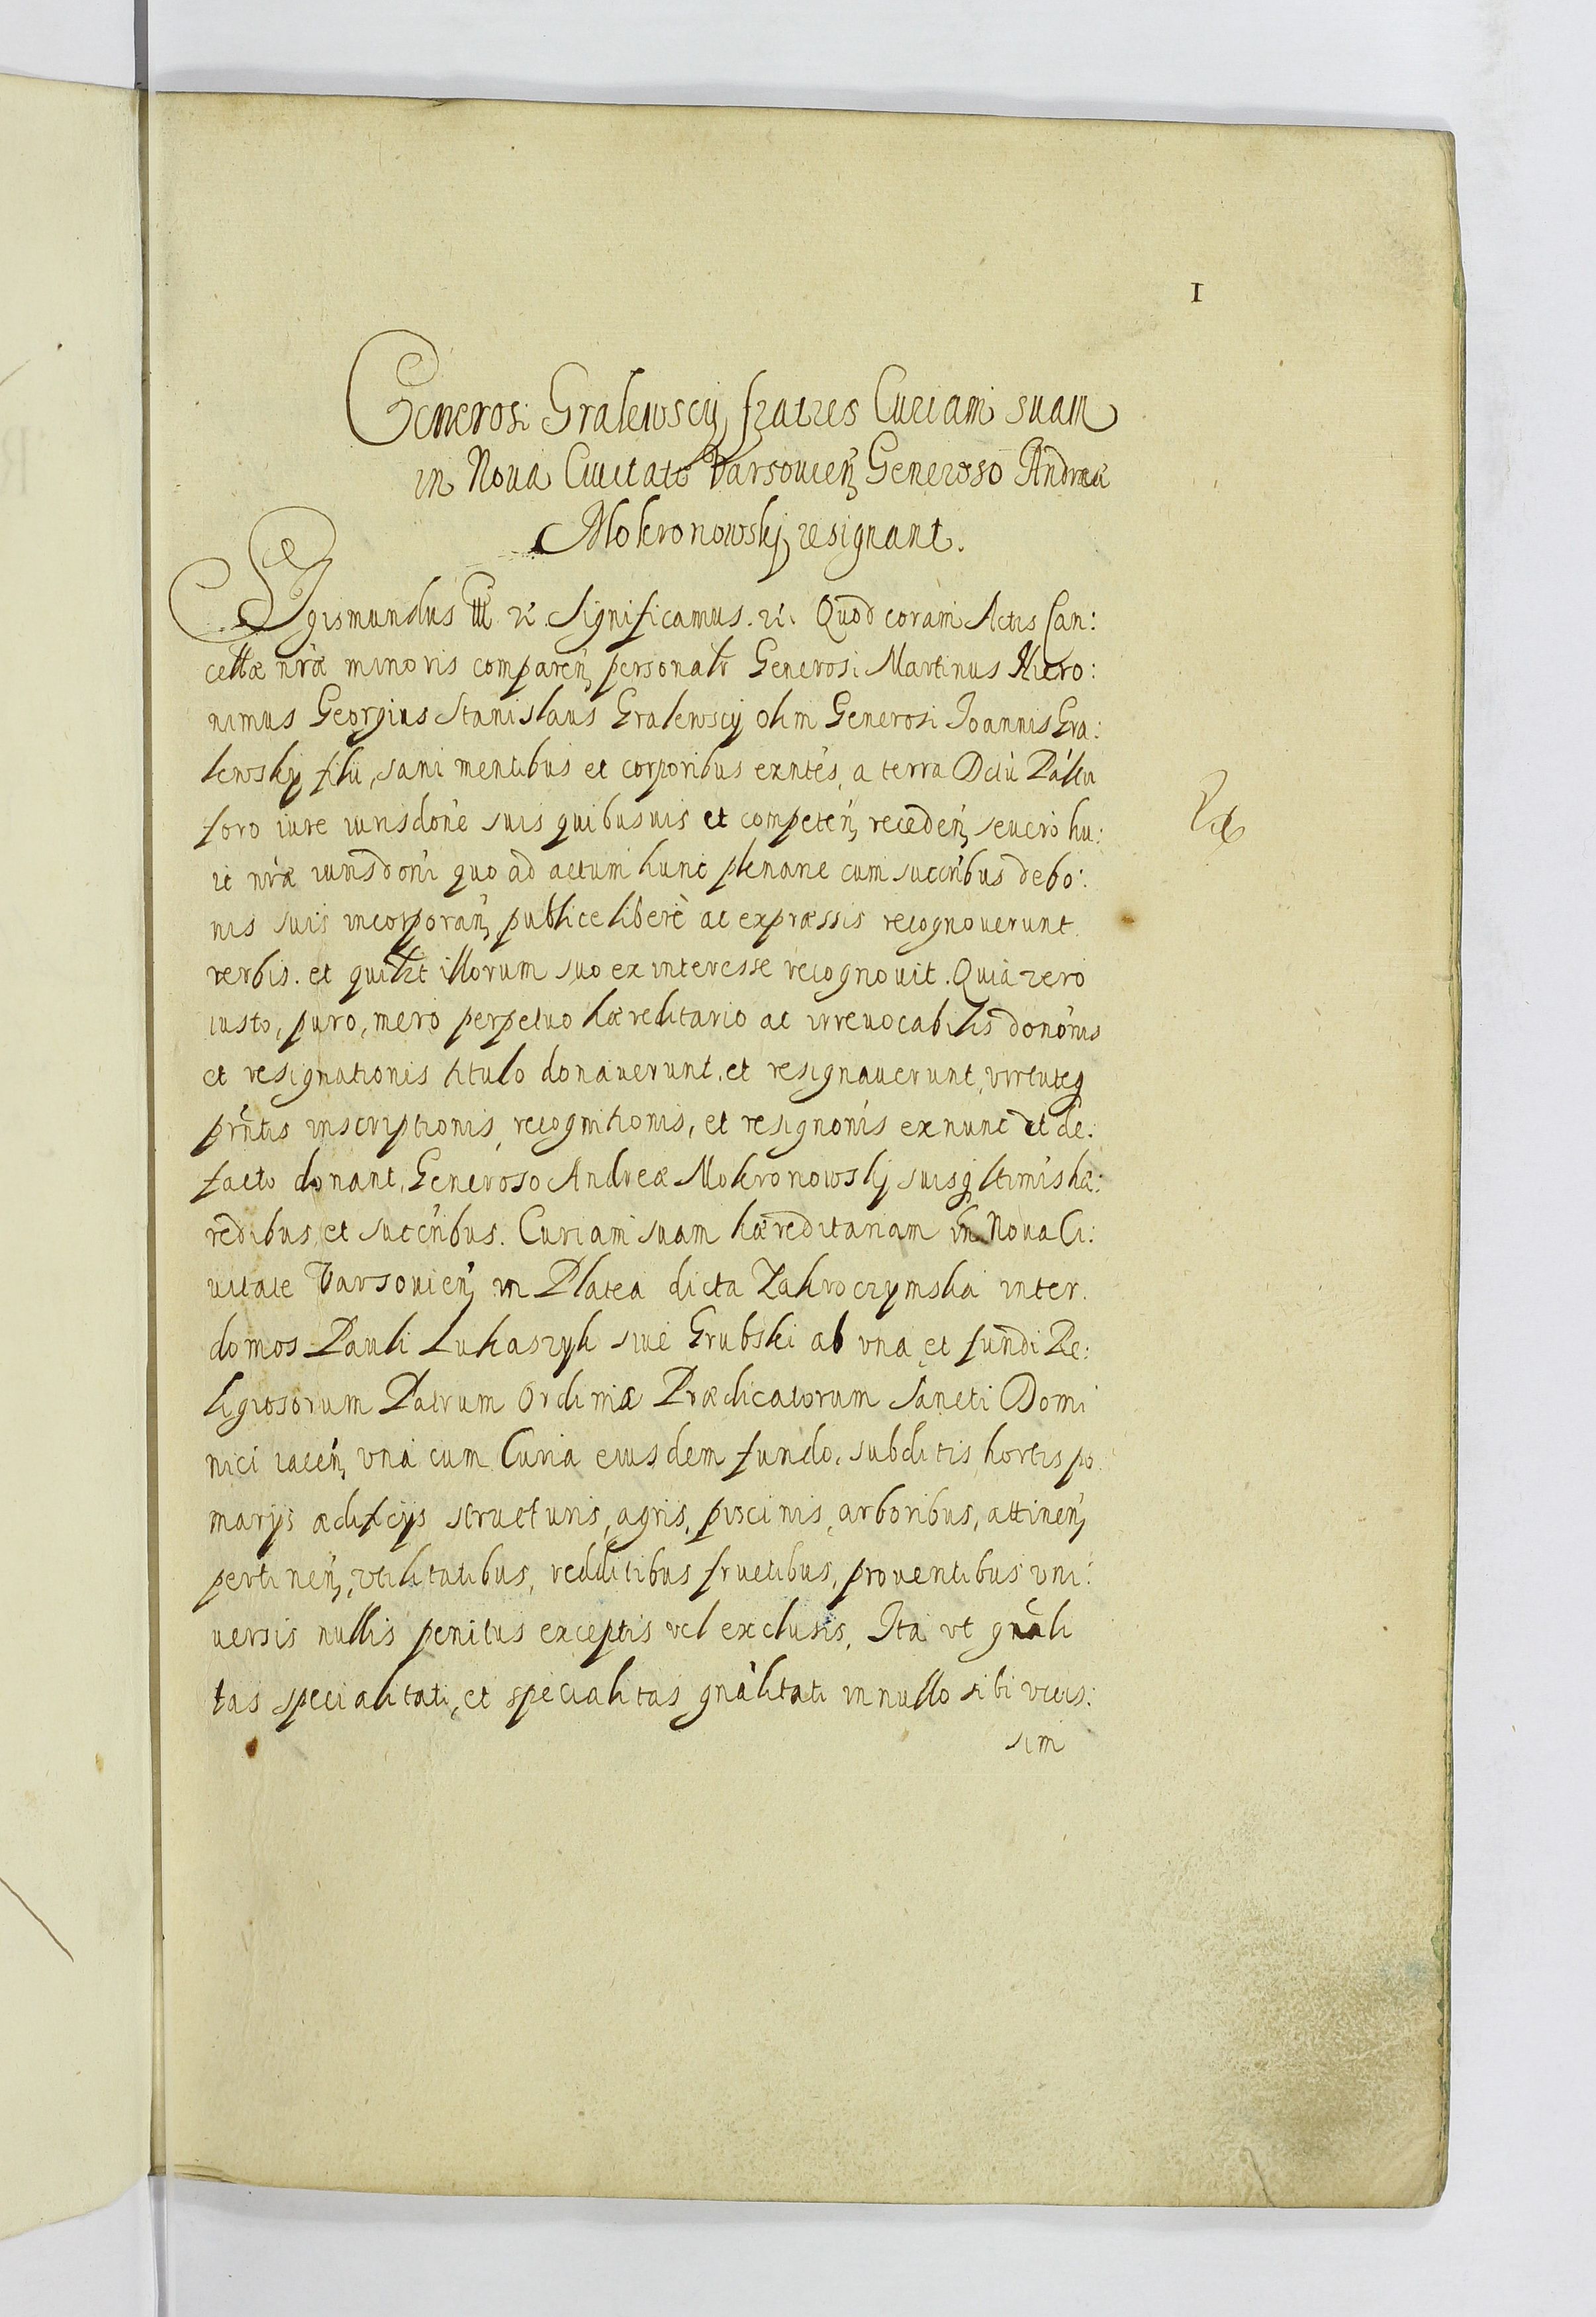 1
Generosi Gralewscy fratres Curiam suam
in Noua Ciuitate Varsouien̄ Generoso Andreæ
Mokronowskj resignant.
Sigismundus III. &. Significamus. &. Quod coram Actis Can:
cellæ nr̄æ minoris comparen̄ personalr̄ Generosi Martinus Hiero:
nimus Georgius Stanislaus Gralewscy olim Generosi Joannis Gra:
lewskj filii, sani mentibus et corporibus exn̄tes, a terra
foro iure iurisdōne suis quibusuis et competen̄ receden̄ seuero hu:
ic nr̄æ iurisdōni quo ad actum hunc plenarie cum succr̄ibus de bo:
nis suis incorporan̄ publice libere ac expræssis recognouerunt
verbis. et quilt illorum suo ex interesse recognouit. Quia vero
iusto, puro, mero perpetuo hæreditario ac irreuocabilis donōnis
et resignationis titulo donauerunt, et resignauerunt, virtuteq
prn̄tis inscriptionis, recognitionis, et resignōnis ex nunc et de:
facto donant, Generoso Andreæ Mokronowskj suisq ltimis hæ:
redibus et succr̄ibus. Curiam suam hæreditariam in Noua Ci:
uitate Varsouien̄ in Platea dicta Zakroczymska inter
domos Pauli Lukaszyk siue Grubski ab vna et fundi Re:
ligiosorum Patrum Ordinis Prædicatorum Sancti Domi
nici iacen̄ vna cum Curia eiusdem fundo, subditis hortis po:
marys ædificys structuris, agris, piscinis, arboribus, attinen̄
pertinen̄, vtilitatibus, redditibus fructibus, prouentibus vni:
uersis nullis penitus exceptis vel exclusis, Ita vt gn̄ali
tas specialitati, et specialitas gn̄alitati in nullo sibi vicis:
sim